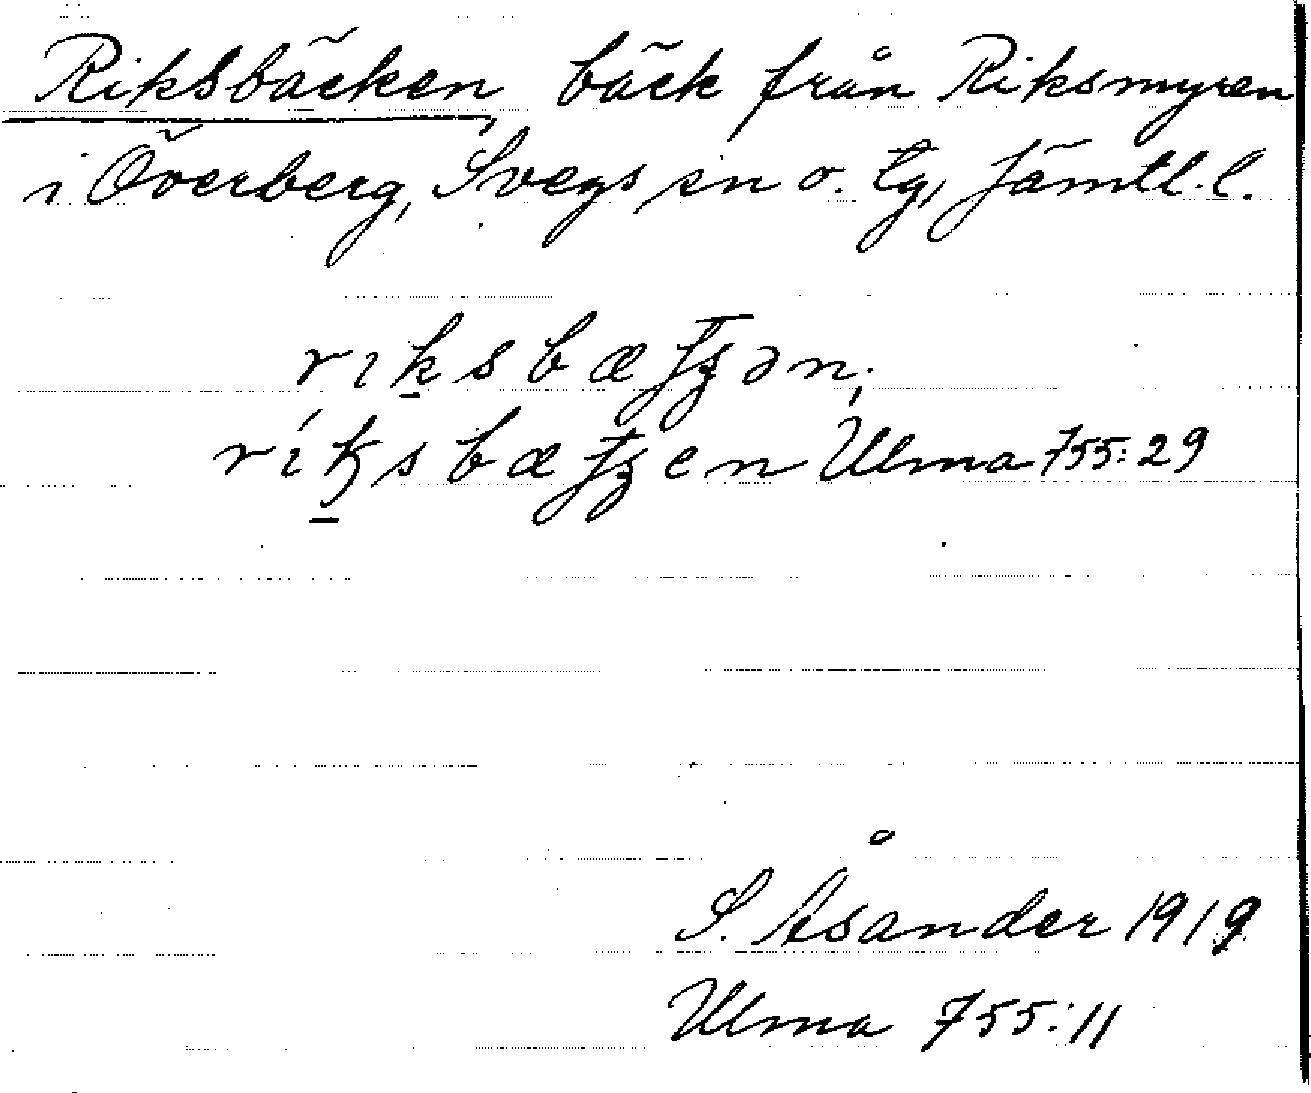 Riksbäcken, bäck från Riksmyren
i Överberg, Svegs sn o. tg, Jämtl. l.
Ulma 755:29
S. Åsander 1919
Ulma 755:11